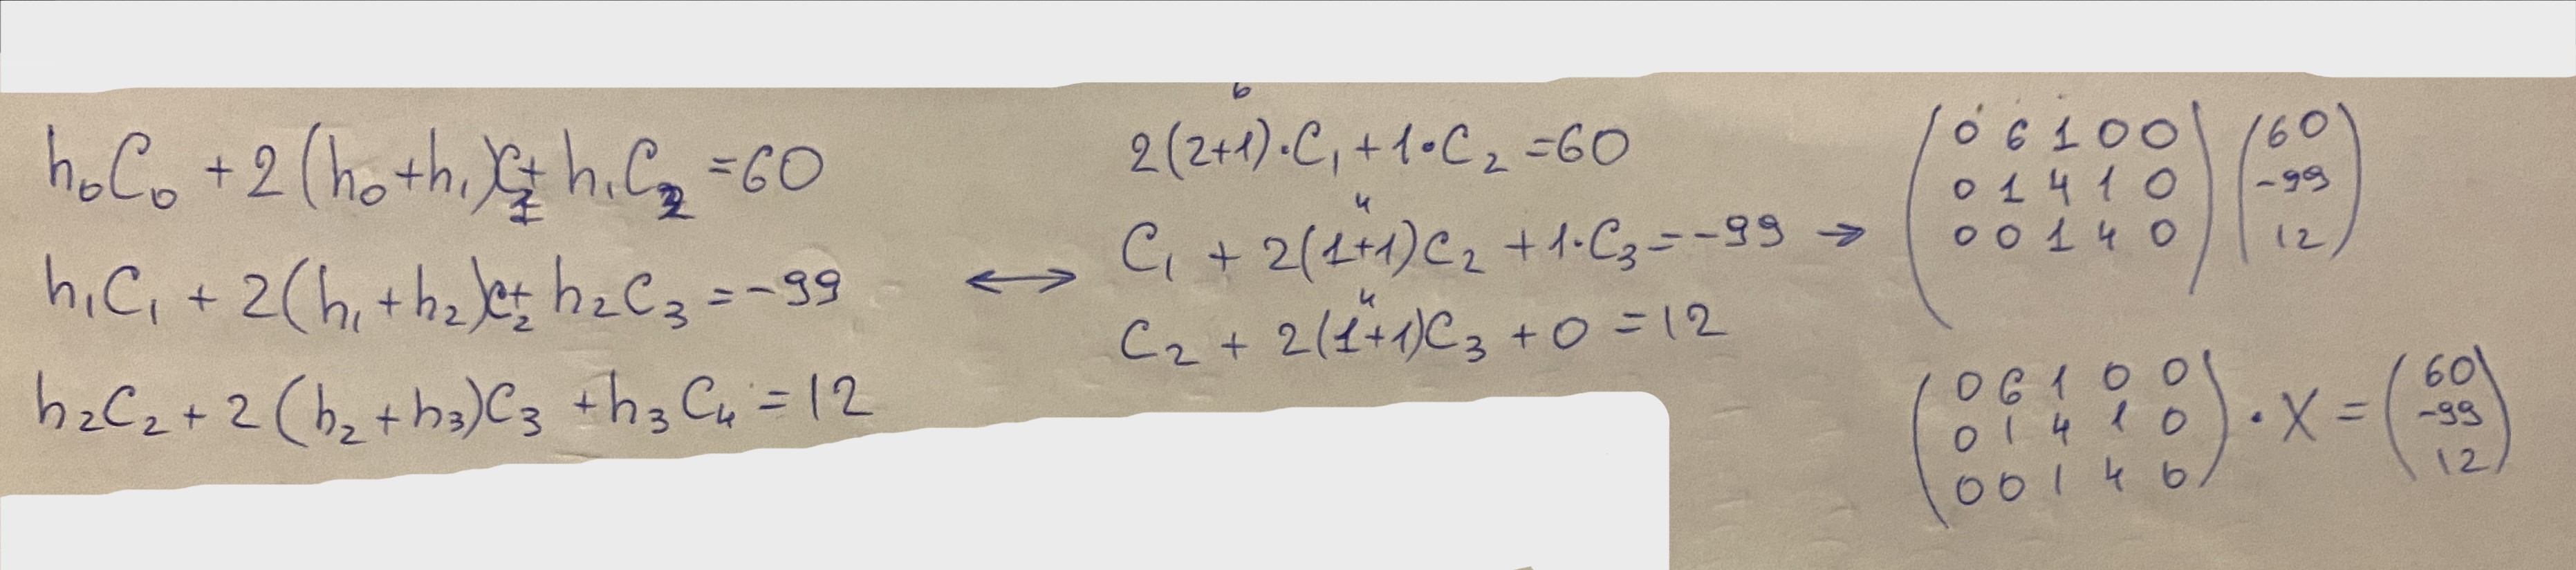 h₀C₀ + 2(h₀+h₁)C₁+ h₁C₂ =60
h₁C₁ + 2(h₁+h₂)C₂+ h₂C₃ =-99
h₂C₂ + 2(h₂+h₃)C₃ +h₃C₄ =12
↔
6
2(2+1)·C₁ + 1·C₂ =60
4
C₁ + 2(1+1)C₂ + 1·C₃ =-99 →
4
C₂ + 2(1+1)C₃ + 0 =12
(0 6 1 0 0) (60)
(0 1 4 1 0) (-99)
(0 0 1 4 0) (12)
(0 6 1 0 0) (60)
(0 1 4 1 0) · X = (-99)
(0 0 1 4 0) (12)